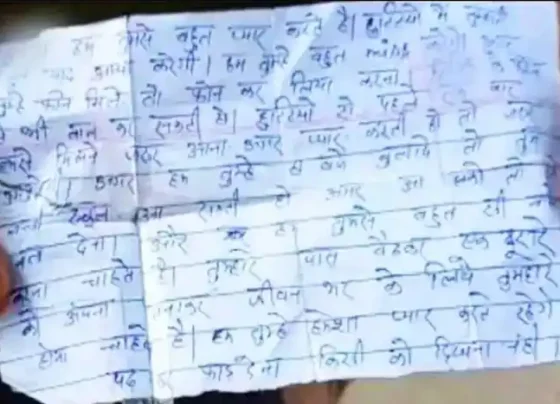 हम तुमसे बहुत प्यार करते है। छुट्टियो मे तुम्हारी
याद आया करेगी। हम तुम्हे बहुत करेगे। अगर
तुम्हे फोन मिले तो फोन कर लिया करना।
बात कर सकती हो। छुट्टियो से पहले एक बार
हमसे मिलने जरूर आना अगर प्यार करती हो तो जरूर
अगर हम तुम्हे 8 बजे बुलाये तो तुम
स्कूल आ सकती हो अगर आ सको तो
बता देना। और हम तुमसे बहुत सी
करना चाहते है। तुम्हारे पास बैठकर एक दूसरे
को अपना बनाकर जीवन भर के लिये तुम्हारे
होना चाहते है। हम तुम्हे हमेशा प्यार करते रहेगे
पढ कर फाड देना किसी को दिखाना नही।